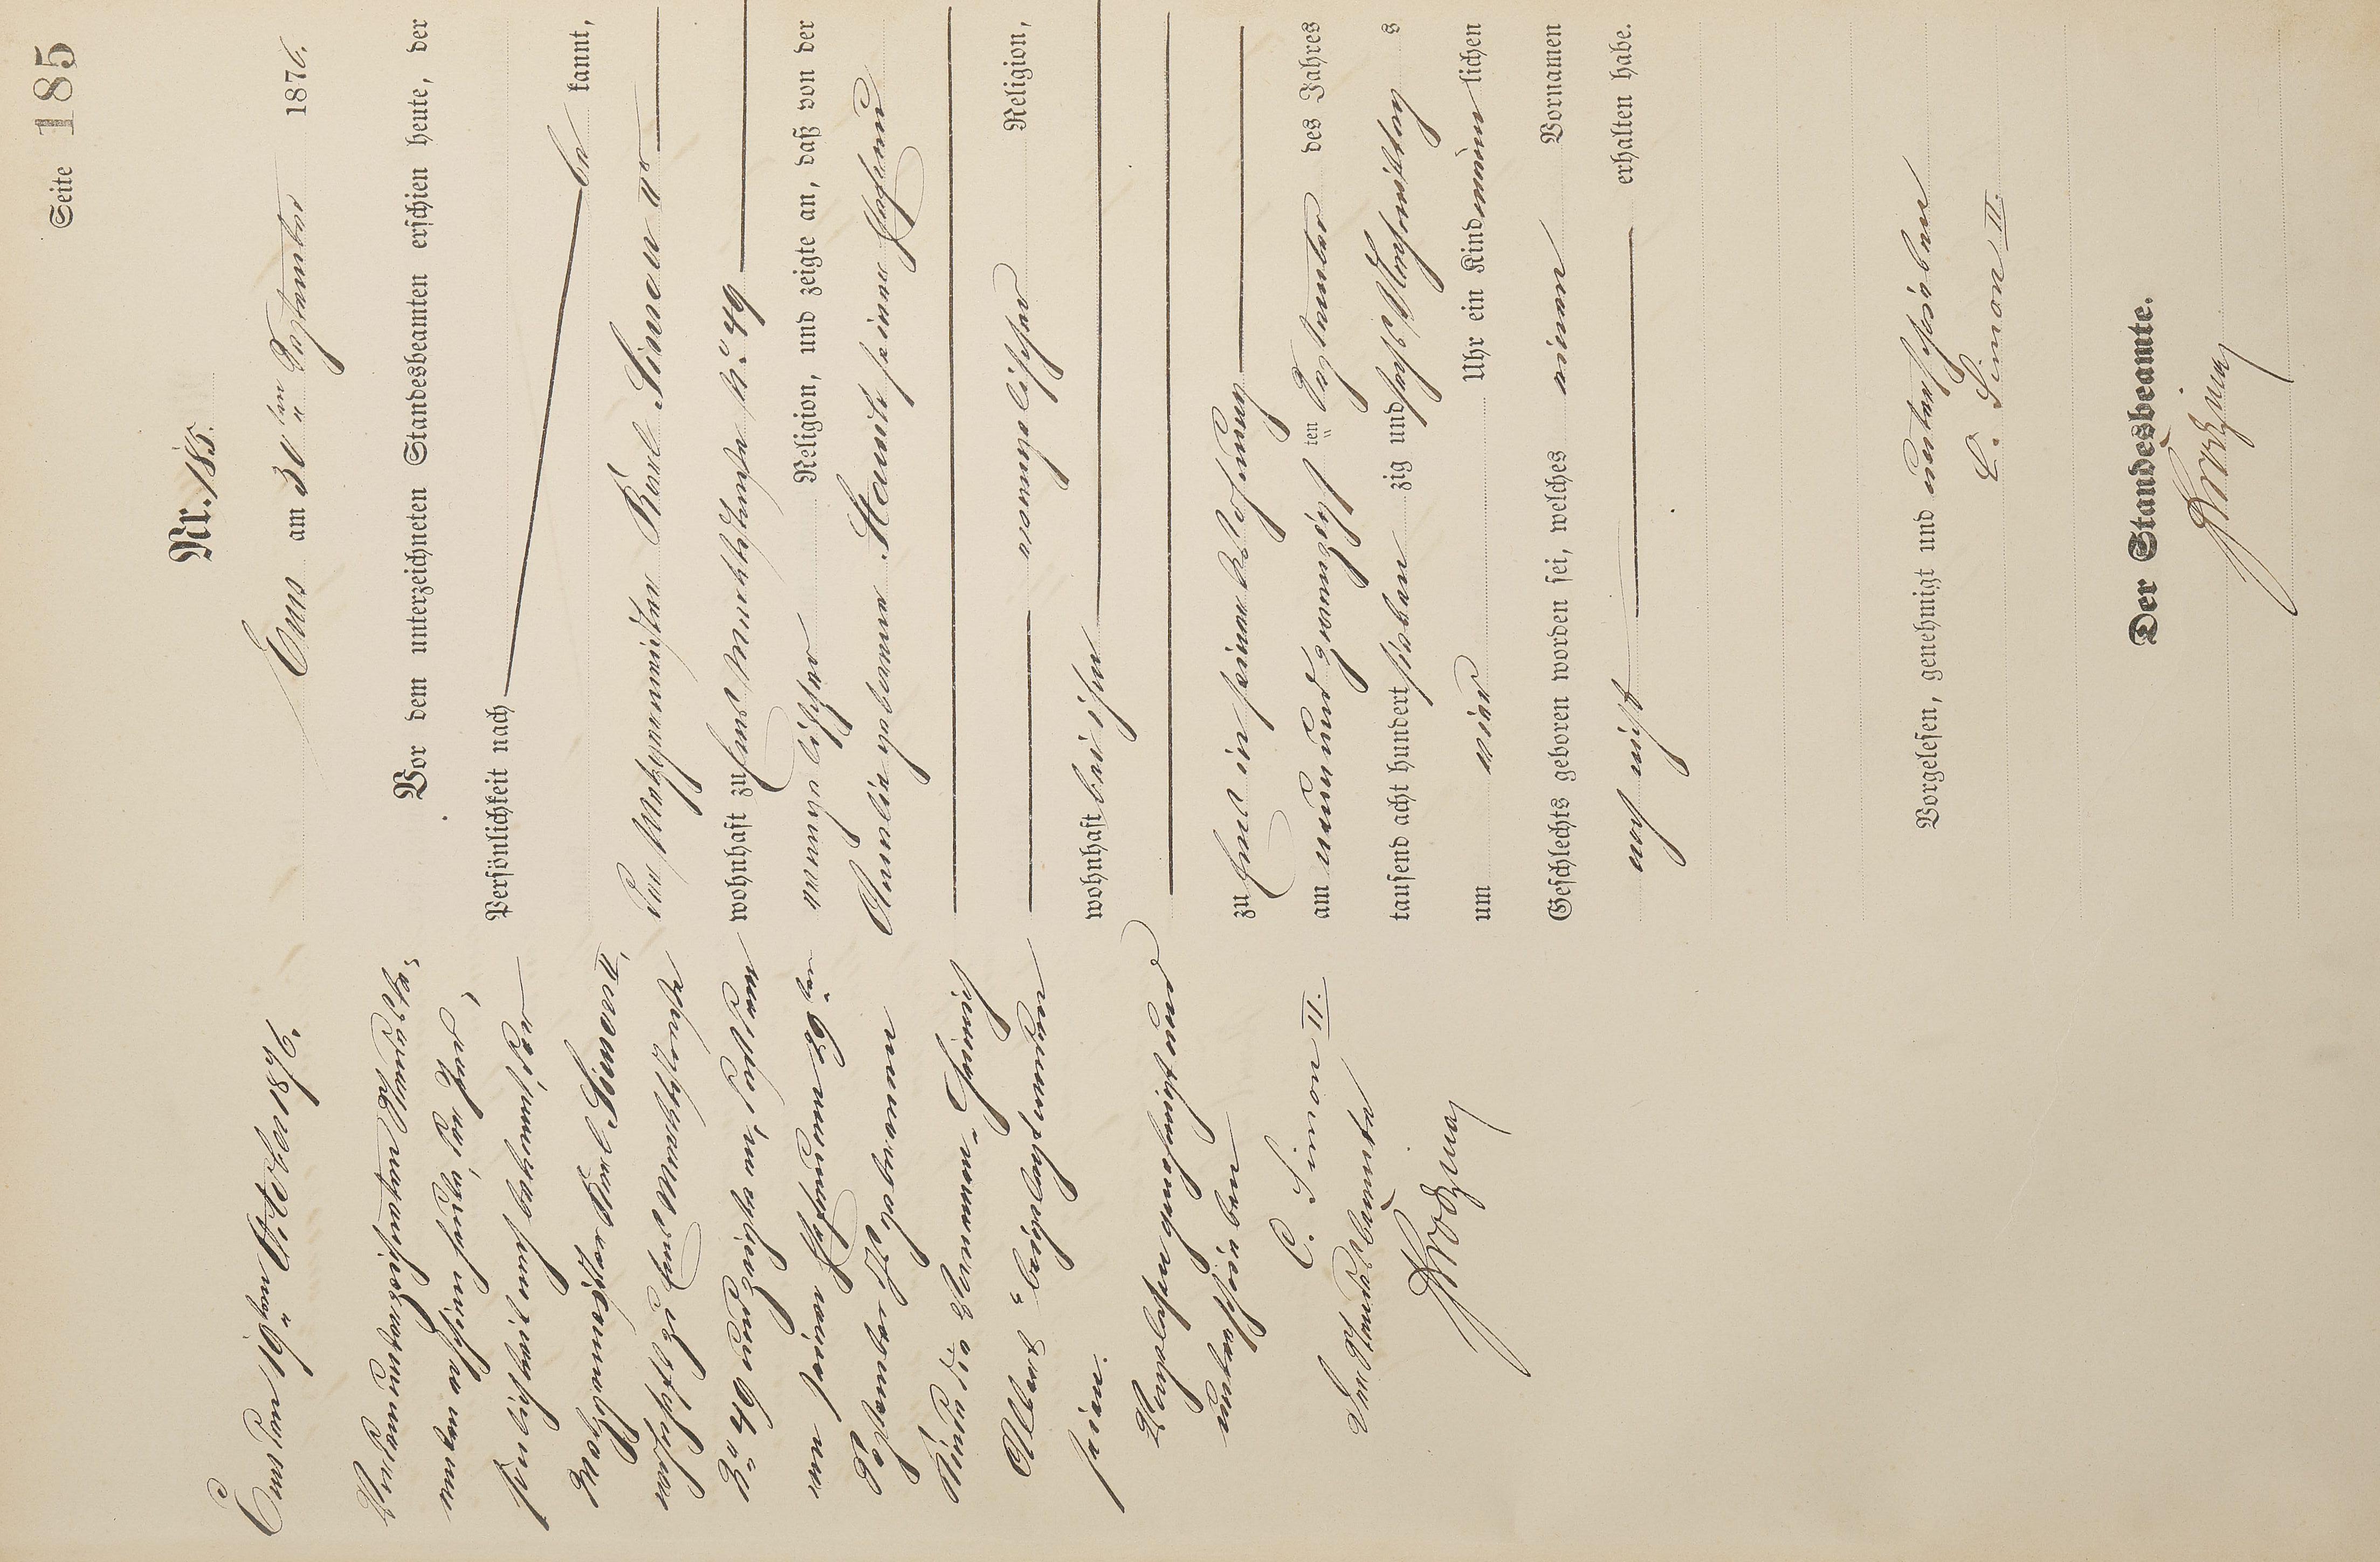 Seite 185
Nr. 185.
Ems am 30ten September 1876.
Vor dem unterzeichneten Standesbeamten erschien heute, der
Persönlichkeit nach
be kannt,
der Metzgermeister Karl Simon IIr
wohnhaft zu Ems Marktstraße No. 49
evangelischer Religion, und zeigte an, daß von der
Amalie geborene Stauch seiner Ehefrau
evangelischer Religion,
wohnhaft bei ihm
zu Ems in seiner Wohnung
am neunundzwanzigsten September des Jahres
tausend acht hundert sieben zig und sechs Nachmittag s
um vier Uhr ein Kind männ lichen
Geschlechts geboren worden sei, welches einen Vornamen
noch nicht erhalten habe.
Vorgelesen, genehmigt und unterschrieben
C. Simon II.
Der Standesbeamte.
Ems den 19ten Oktober 1876.
Vor dem unterzeichneten Standesbe=
amten erschien heute, der Per=
sönlichkeit nach bekannt, der
Metzgermeister Karl Simon II,
wohnhaft zu Ems Marktstraße
No 49 und zeigte an, daß dem
von seiner Ehefrau am 29ten
September 1876 geborenen
Kinde die Vornamen "Heinrich
Albert" beigelegt worden
seien.
Vorgelesen genehmigt und
unterschrieben
C. Simon II.
Der Standesbeamte